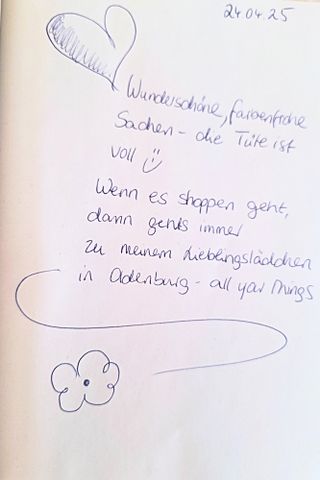 24.04.25
Wunderschöne, farbenfrohe
Sachen - die Tüte ist
voll :)
Wenn es shoppen geht,
dann gehts immer
zu meinem Lieblingslädchen
in Oldenburg - all your Things